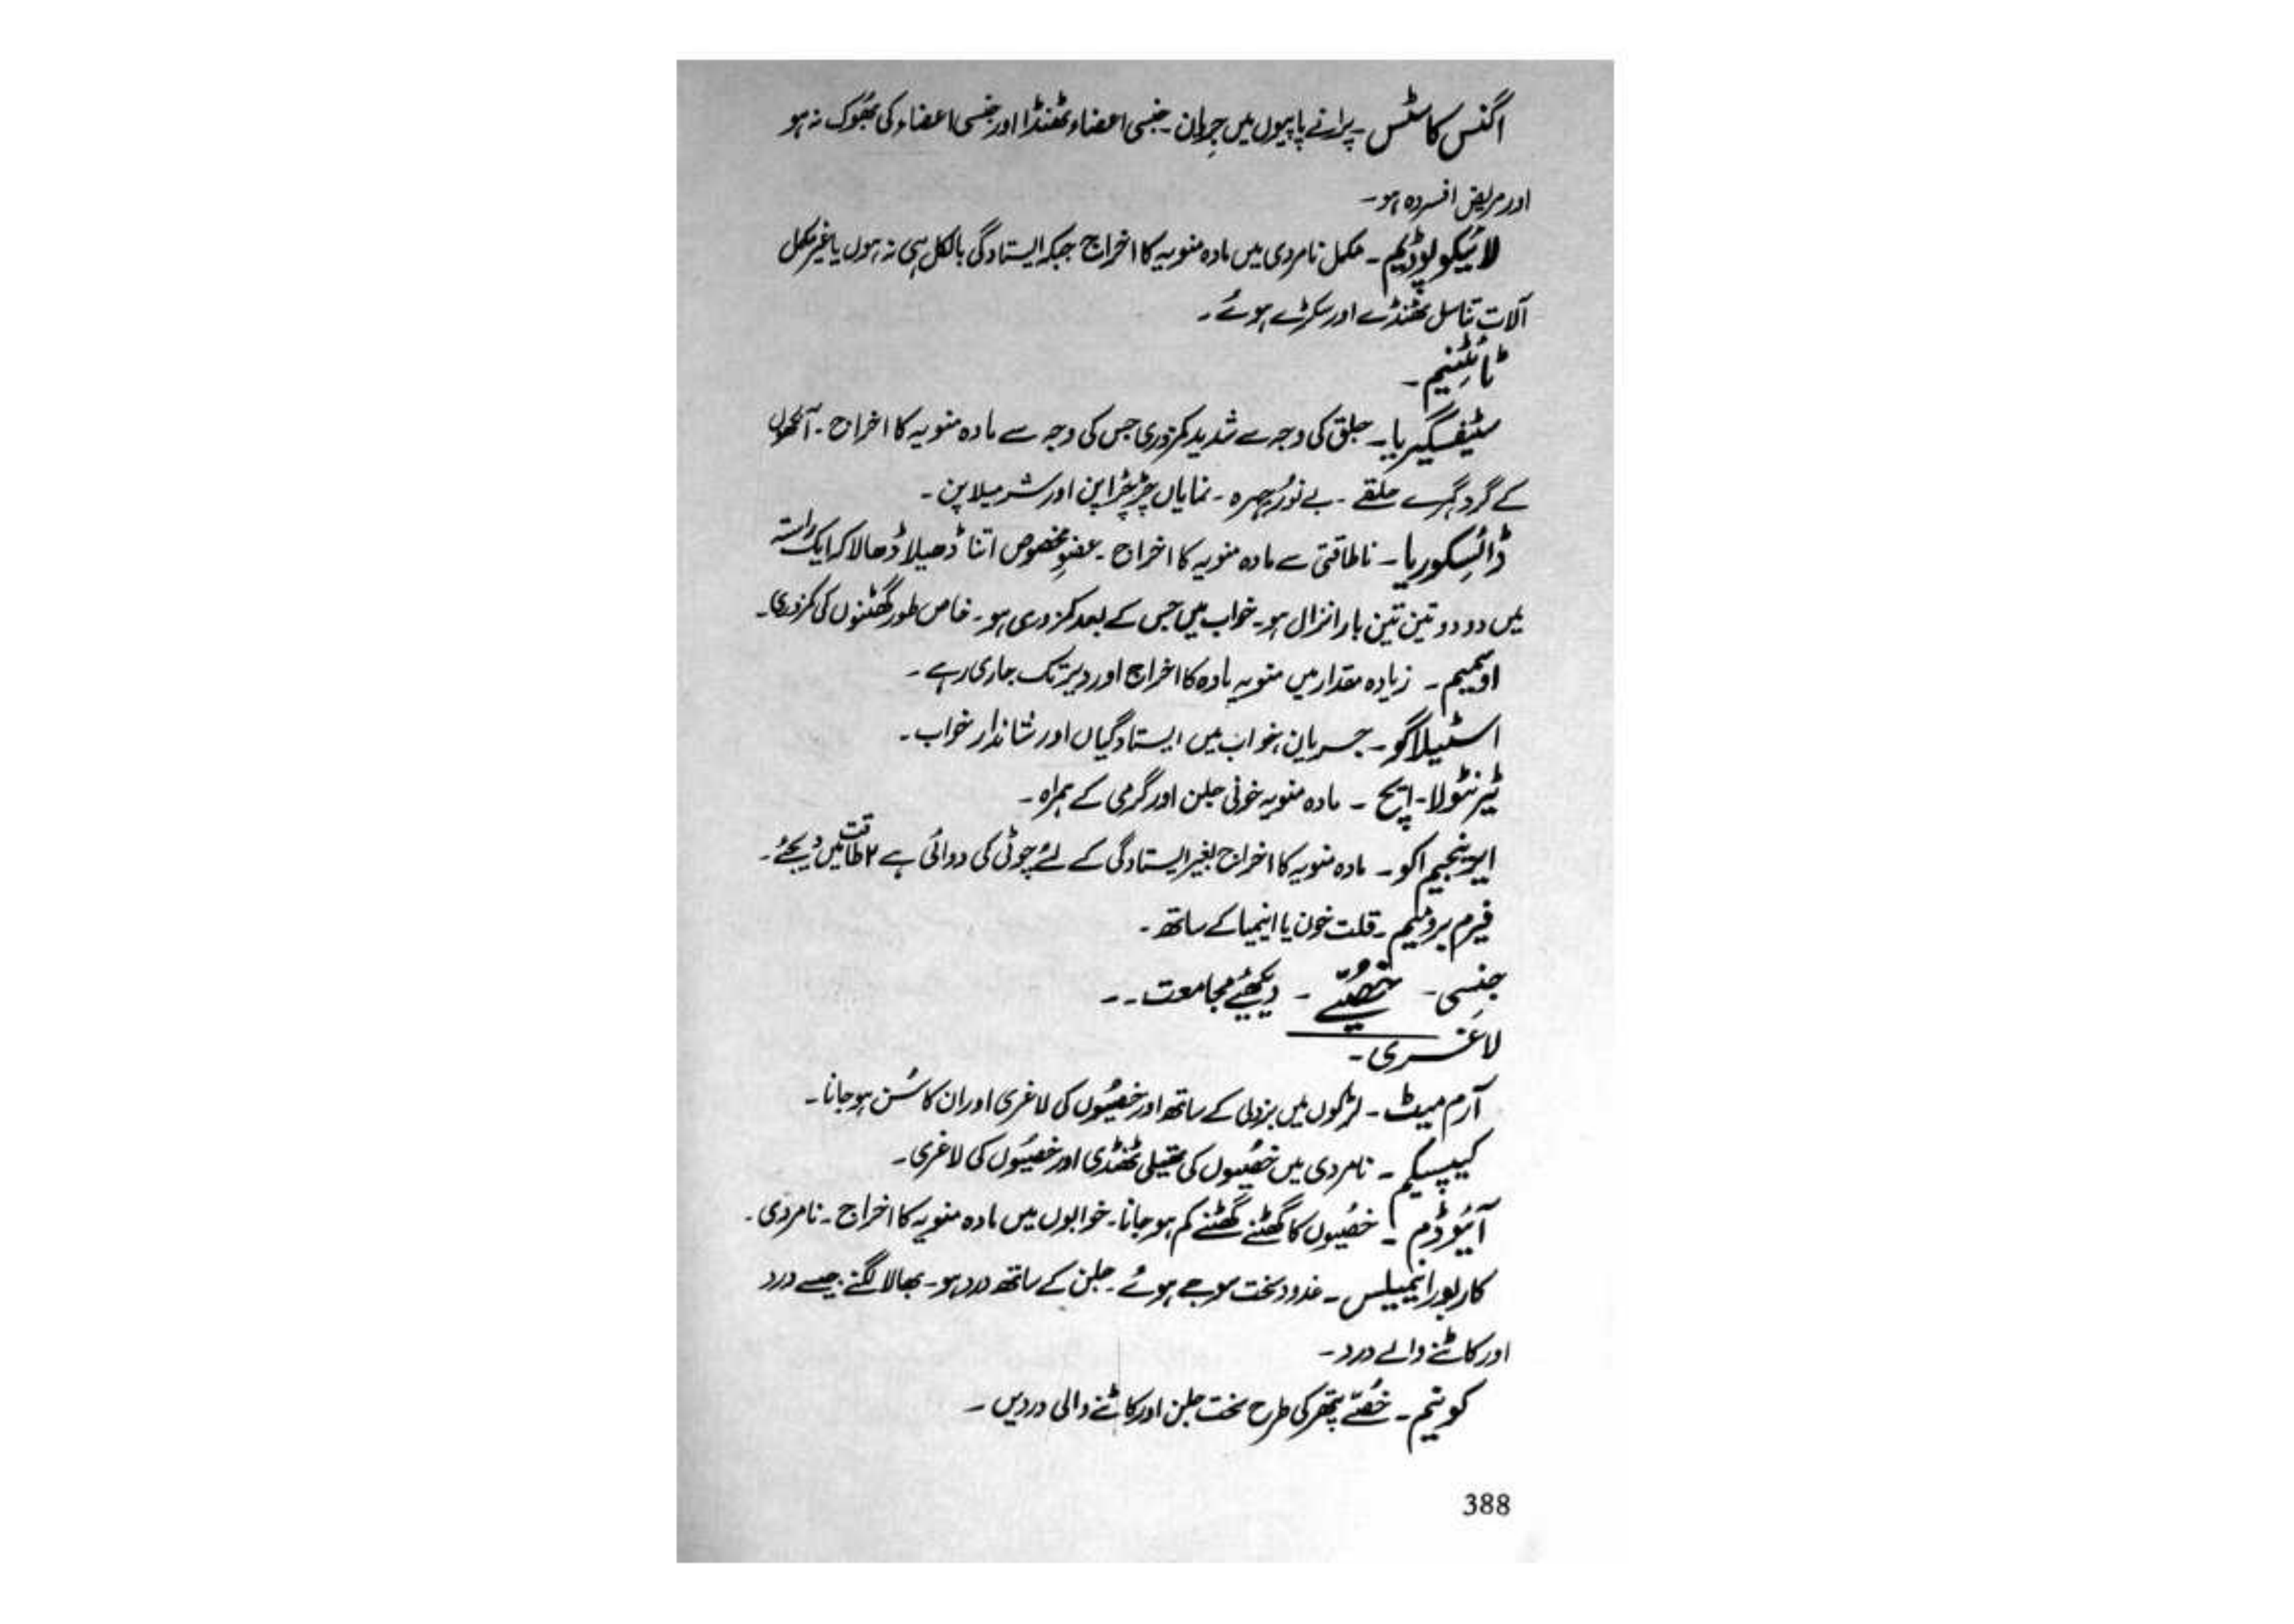 اگنس کاسٹس۔ پرانے پاپیوں میں جریان۔ جنسی اعضاء ٹھنڈا اور جنسی اعضاء کی بھوک نہ ہو
اور مریض افسردہ ہو۔
لائیکوپوڈیم۔ مکمل نامردی میں مادہ منویہ کا اخراج جبکہ ایستادگی بالکل ہی نہ ہوں یا غیر مکمل
آلات تناسل ٹھنڈے اور سکڑے ہوئے۔
ٹائٹنیم۔
سٹیفسیگیریا۔ جلق کی وجہ سے شدید کمزوری جس کی وجہ سے مادہ منویہ کا اخراج۔ آنکھوں
کے گرد گہرے حلقے۔ بے نور چہرہ۔ نمایاں چڑچڑاپن اور شرمیلاپن۔
ڈائسکوریا۔ ناطاقتی سے مادہ منویہ کا اخراج۔ عضوِ مخصوص اتنا ڈھیلا ڈھالا کہ ایک رات
میں دو دو تین تین بار انزال ہو۔ خواب میں جس کے بعد کمزوری ہو۔ خاص طور گھٹنوں کی کمزوری۔
اوپیم۔ زیادہ مقدار میں منویہ مادہ کا اخراج اور دیر تک جاری رہے۔
اسٹیلاگو۔ جریان، خواب میں ایستادگیاں اور شاندار خواب۔
ٹیرنٹولا۔ ایچ۔ مادہ منویہ خونی جلن اور گرمی کے ہمراہ۔
ایرینجیم اکو۔ مادہ منویہ کا اخراج بغیر ایستادگی کے لئے چوٹی کی دوائی ہے ۲ طاقت میں دیجئے۔
فیرم برومیم۔ قلت خون یا انیمیا کے ساتھ۔
جنسی۔ خصیے۔ دیکھئے مجامعت۔۔
لاغری۔
آرم میٹ۔ لڑکوں میں بزدلی کے ساتھ اور خصیوں کی لاغری اور ان کا سُن ہو جانا۔
کیپسیکم۔ نامردی میں خصیوں کی تھیلی ٹھنڈی اور خصیوں کی لاغری۔
آئیوڈم۔ خصیوں کا گھٹنے گھٹنے کم ہو جانا۔ خوابوں میں مادہ منویہ کا اخراج۔ نامردی۔
کاربو اینیمیلس۔ غدود سخت سوجے ہوئے۔ جلن کے ساتھ درد ہو۔ بھالا لگنے جیسے درد
اور کاٹنے والے درد۔
کونیم۔ خصیے پتھر کی طرح سخت جلن اور کاٹنے والی دردیں۔
388